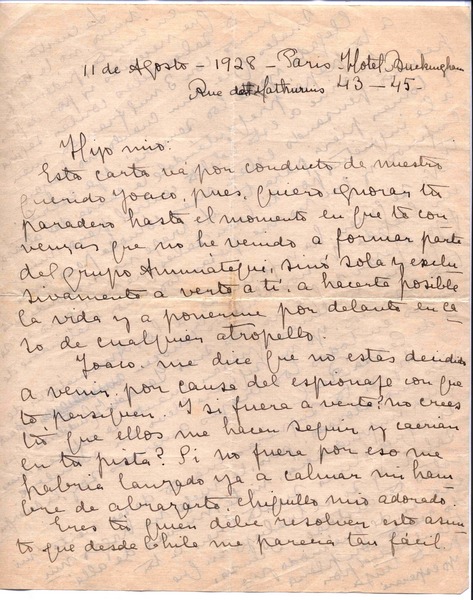 11 de Agosto - 1928 - Paris - Hotel Buckingham
Rue des Mathurins 43 - 45 -
Hijo mio:
Esta carta vá por conducto de nuestro
querido Joaco, pues, quiero ignorar tu
paradero hasta el momento en que te con
venzas que no he venido a formar parte
del grupo Amunátegui, sinó sola y exclu
sivamente a verte a ti, a hacerte posible
la vida y a ponerme por delante en ca
so de cualquier atropello.
Joaco, me dice que no estas decidido
a venir, por causa del espionaje con que
te persiguen. I si fuera a verte? no crees
tú que ellos me hacen seguir y caerian
en tu pista? Si no fuera por eso me
habria lanzado ya a calmar mi ham
bre de abrazarte, chiquillo mio adorado.
Eres tú quien debe resolver este asun
to que desde Chile me parecia tan fácil.